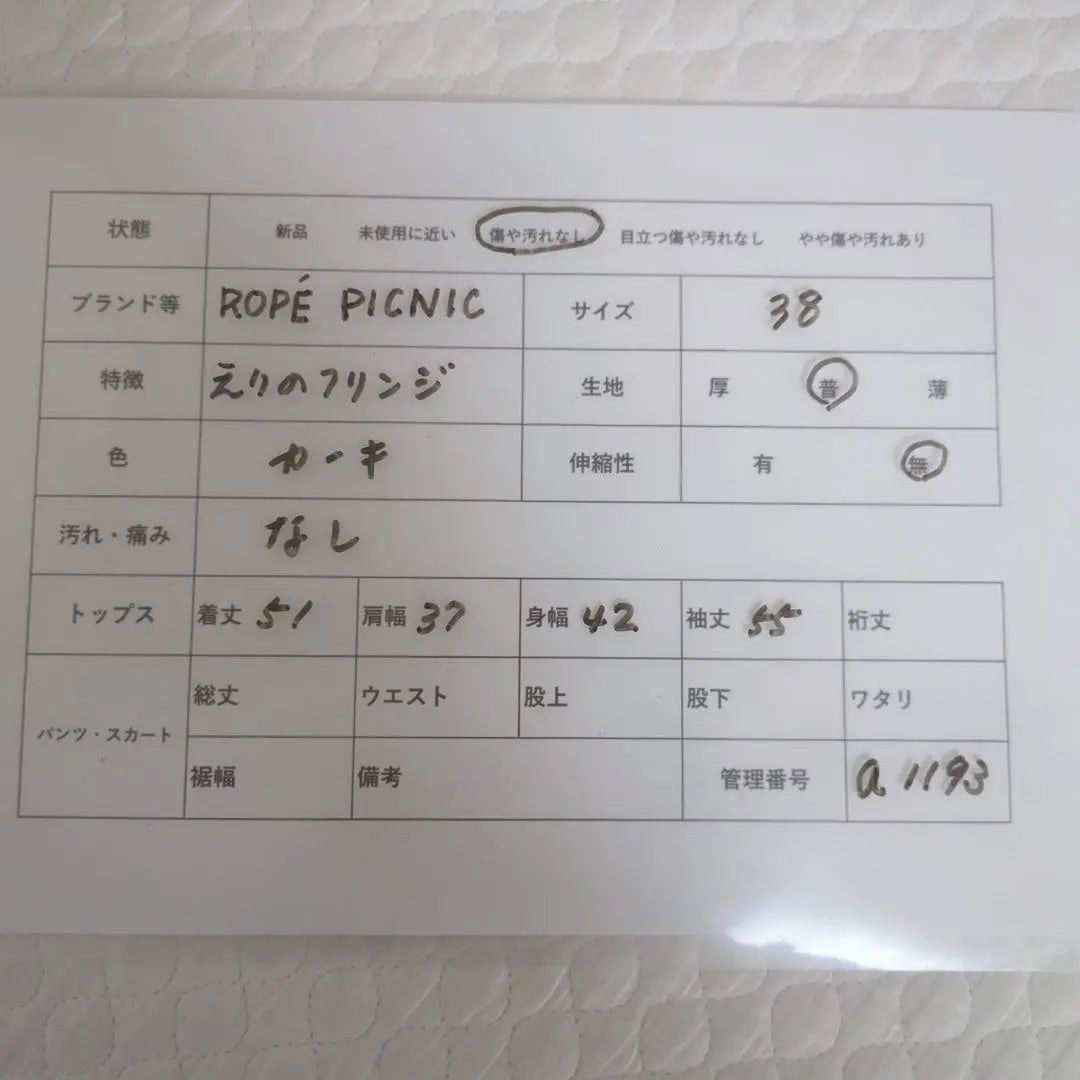 状態 新品 未使用に近い 傷や汚れなし 目立つ傷や汚れなし やや傷や汚れあり
ブランド等 ROPÉ PICNIC サイズ 38
特徴 えりのフリンジ 生地 厚 普 薄
色 カーキ 伸縮性 有 無
汚れ・痛み なし
トップス 着丈 51 肩幅 37 身幅 42 袖丈 55 裄丈
パンツ・スカート 総丈 ウエスト 股上 股下 ワタリ
裾幅 備考 管理番号 a 1193